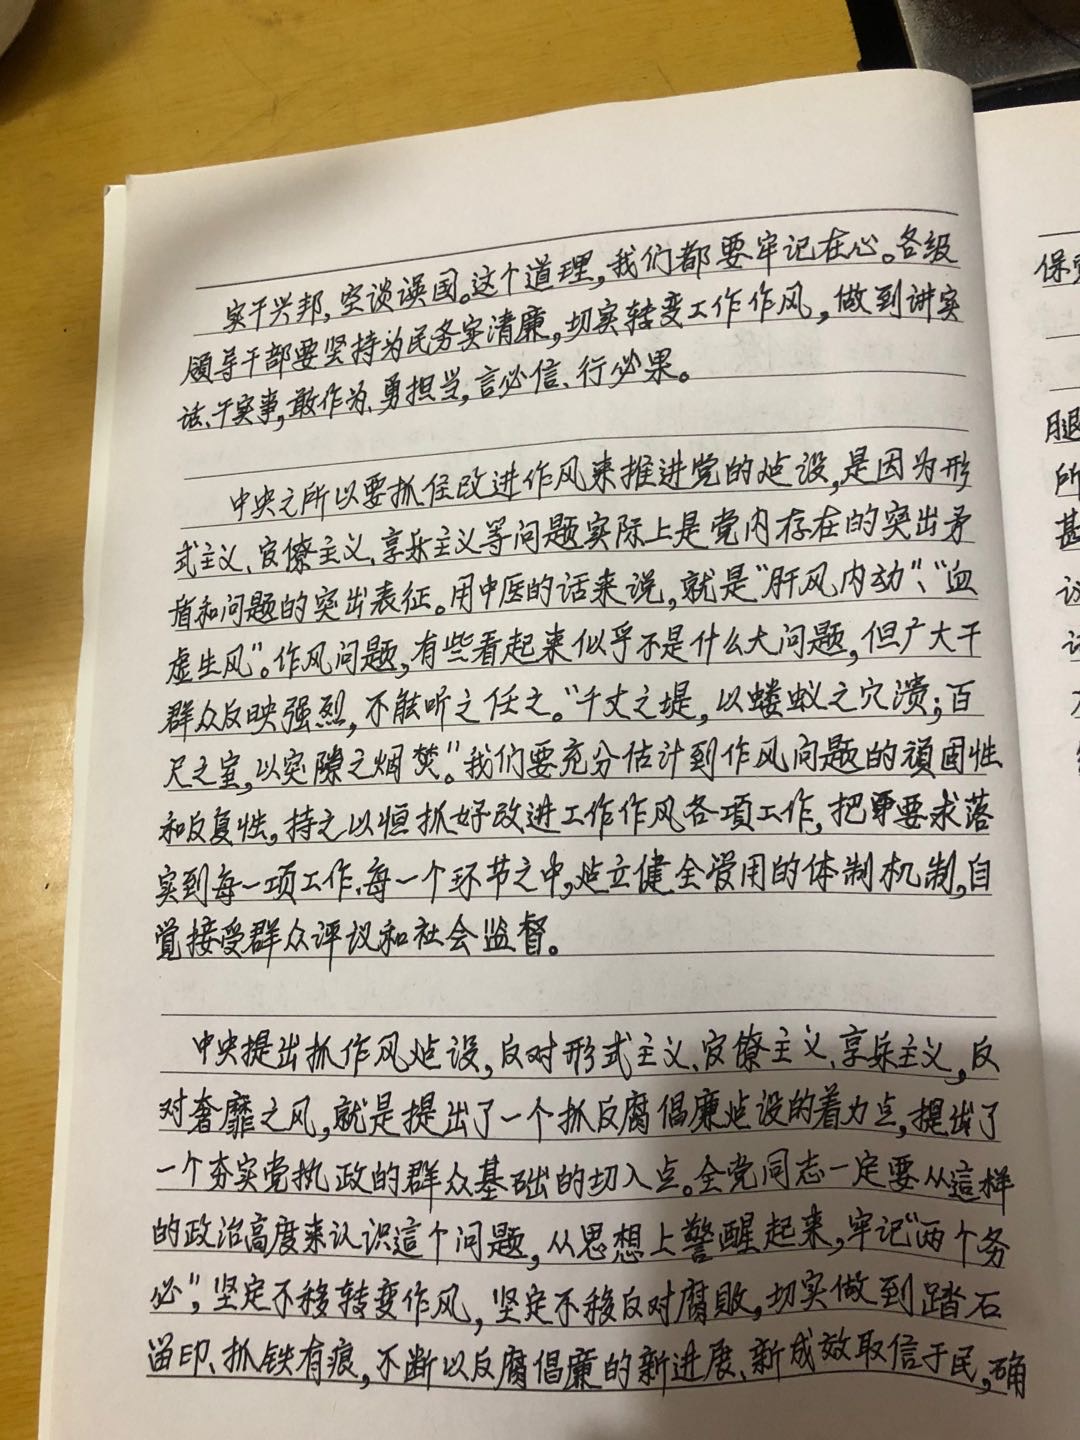 实干兴邦,空谈误国。这个道理,我们都要牢记在心。各级
领导干部要坚持为民务实清廉,切实转变工作作风,做到讲实
话、干实事,敢作为、勇担当,言必信、行必果。
中央之所以要抓住改进作风来推进党的建设,是因为形
式主义、官僚主义、享乐主义等问题实际上是党内存在的突出矛
盾和问题的突出表征。用中医的话来说,就是“肝风内动”、“血
虚生风”。作风问题,有些看起来似乎不是什么大问题,但广大干
群众反映强烈,不能听之任之。“千丈之堤,以蝼蚁之穴溃;百
尺之室,以突隙之烟焚”。我们要充分估计到作风问题的顽固性
和反复性,持之以恒抓好改进工作作风各项工作,把要求落
实到每一项工作、每一个环节之中,建立健全管用的体制机制,自
觉接受群众评议和社会监督。
中央提出抓作风建设,反对形式主义、官僚主义、享乐主义,反
对奢靡之风,就是提出了一个抓反腐倡廉建设的着力点,提出了
一个夯实党执政的群众基础的切入点。全党同志一定要从這样
的政治高度来认识這个问题,从思想上警醒起来,牢记“两个务
必”,坚定不移转变作风,坚定不移反对腐败,切实做到踏石
留印、抓铁有痕,不断以反腐倡廉的新进展、新成效取信于民,确
保
腿
所
甚
议